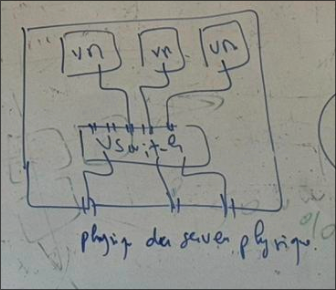 VM VM VM
VSwitch
physique des server physique.